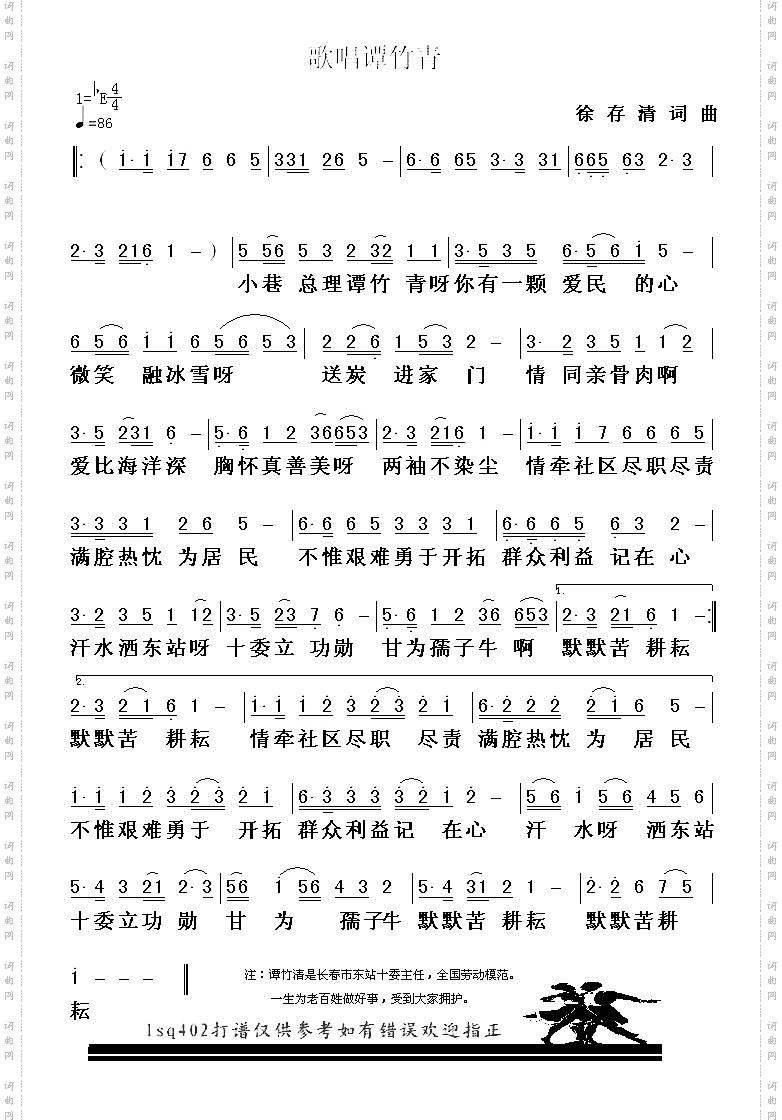 歌唱谭竹青
1=♭E 4/4
♩=86
徐存清 词 曲
‖: ( i· i i7 6 6 5 | 331 26 5 – | 6· 6 65 3· 3 31 | 665 63 2· 3 |
2· 3 216 1 – ) | 5 56 5 3 2 32 1 1 | 3· 5 3 5 6· 5 6 i 5 – |
小巷 总理谭竹 青呀你有一颗 爱民 的心
6 5 6 i i 6 5 6 5 3 | 2 2 6 1 5 3 2 – | 3· 2 3 5 1 1 2 |
微笑 融冰雪呀 送炭 进家 门 情 同亲骨肉啊
3· 5 231 6 – | 5· 6 1 2 36653 | 2· 3 216 1 – | i· i i 7 6 6 6 5 |
爱比海洋深 胸怀真善美呀 两袖不染尘 情牵社区尽职尽责
3· 3 3 1 2 6 5 – | 6· 6 6 5 3 3 3 1 | 6· 6 6 5 6 3 2 – |
满腔热忱 为居 民 不惟艰难勇于开拓 群众利益 记在 心
1.
3· 2 3 5 1 12 | 3· 5 23 7 6 – | 5· 6 1 2 36 653 | 2· 3 21 6 1 – :‖
汗水洒东站呀 十委立 功勋 甘为孺子牛 啊 默默苦 耕耘
2.
2· 3 2 1 6 1 – | i· i i 2 3 2 3 2 i | 6· 2 2 2 2 i 6 5 – |
默默苦 耕耘 情牵社区尽职 尽责 满腔热忱 为 居 民
i· i i 2 3 2 3 2 i | 6· 3 3 3 3 2 i 2 – | 5 6 i 5 6 4 5 6 |
不惟艰难勇于 开拓 群众利益记 在心 汗 水呀 洒东站
5· 4 3 21 2· 3 | 56 i 56 4 3 2 | 5· 4 31 2 1 – | 2· 2 6 7 5 |
十委立功 勋 甘 为 孺子牛 默默苦 耕耘 默默苦耕
i – – – ‖
耘
注：谭竹清是长春市东站十委主任，全国劳动模范。
一生为老百姓做好事，受到大家拥护。
lsq402打谱仅供参考如有错误欢迎指正